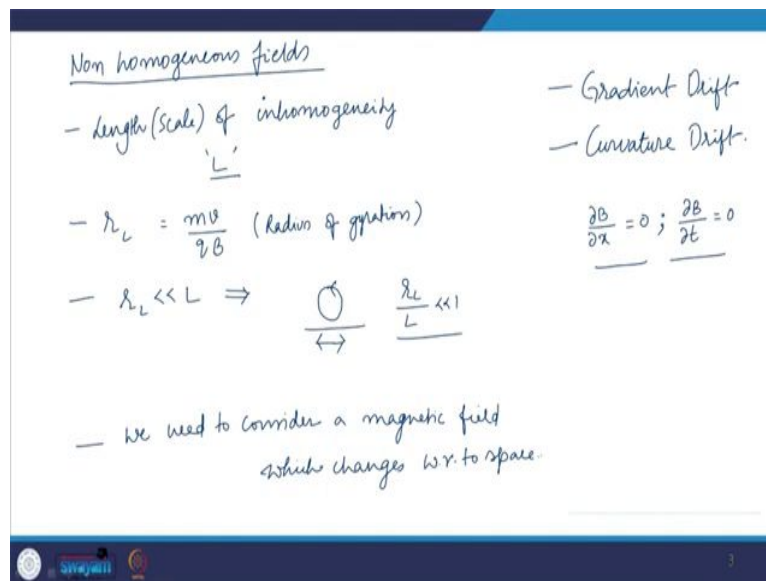 Non homogeneous fields
- Length (Scale) of inhomogeneity
'L'
- r_L = mv/qB (Radius of gyration)
- r_L << L ⇒ r_L/L <<1
↔
- We need to consider a magnetic field
which changes w.r.to space.
- Gradient Drift
- Curvature Drift.
∂B/∂x = 0 ; ∂B/∂t = 0
swayam
3